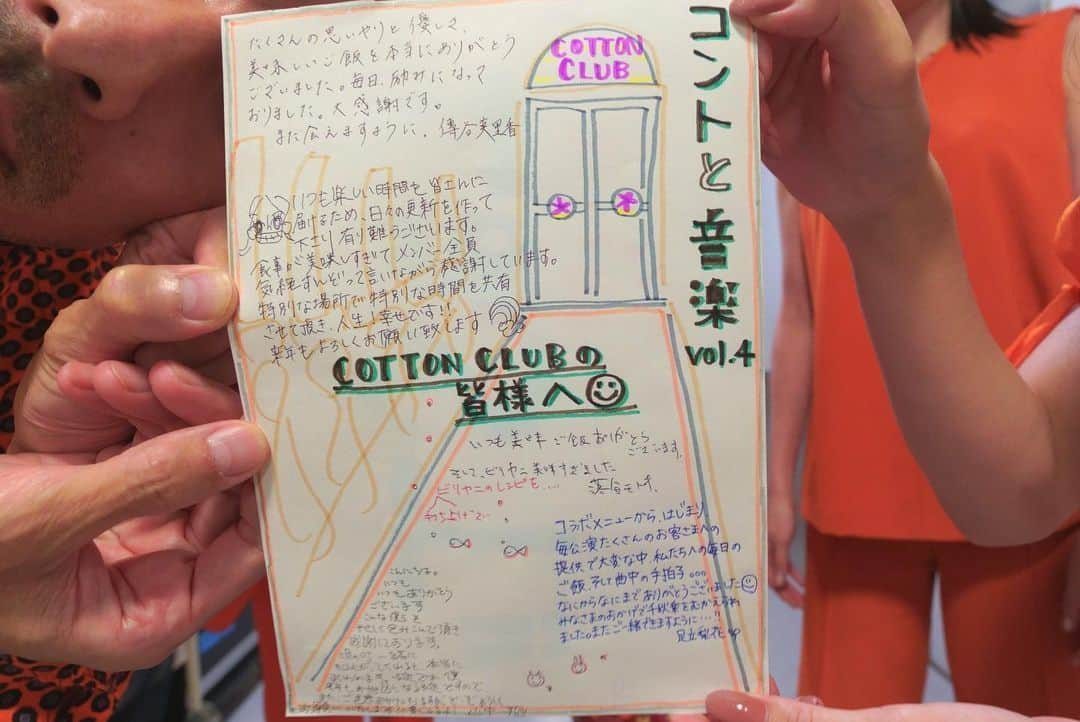 コントと音楽
vol.4
COTTON
CLUB
たくさんの思いやりと優しさ、
美味しいご飯を本当にありがとう
ございました。毎日、励みになって
おりました。大感謝です。
また会えますように。
いつも楽しい時間を皆さんに
届けるため、日々の更新を作って
下さり有り難うございます。
食事が美味しすぎてメンバー全員
気絶すんぞって言いながら感謝しています。
特別な場所で特別な時間を共有
させて頂き、人生1幸せです!!
来年もよろしくお願い致します
COTTON CLUBの
皆様へ
いつも美味ご飯ありがとう
ございます。
そして、ビリヤニ美味すぎました
ビリヤニのレシピを....
コラボメニューから、はじまり
毎公演たくさんのお客さまへの
提供で大変な中、私たちへの毎日の
ご飯、そして曲中の手拍子。。。
なにからなにまでありがとうございました
みなさまのおかげで千秋楽をむかえられ
ました。またご一緒できますように...!!
足立梨花
こんにちは。
いつも
いつもありがとう
ございます
こんな僕らを
包みこんで頂き
感謝しております。